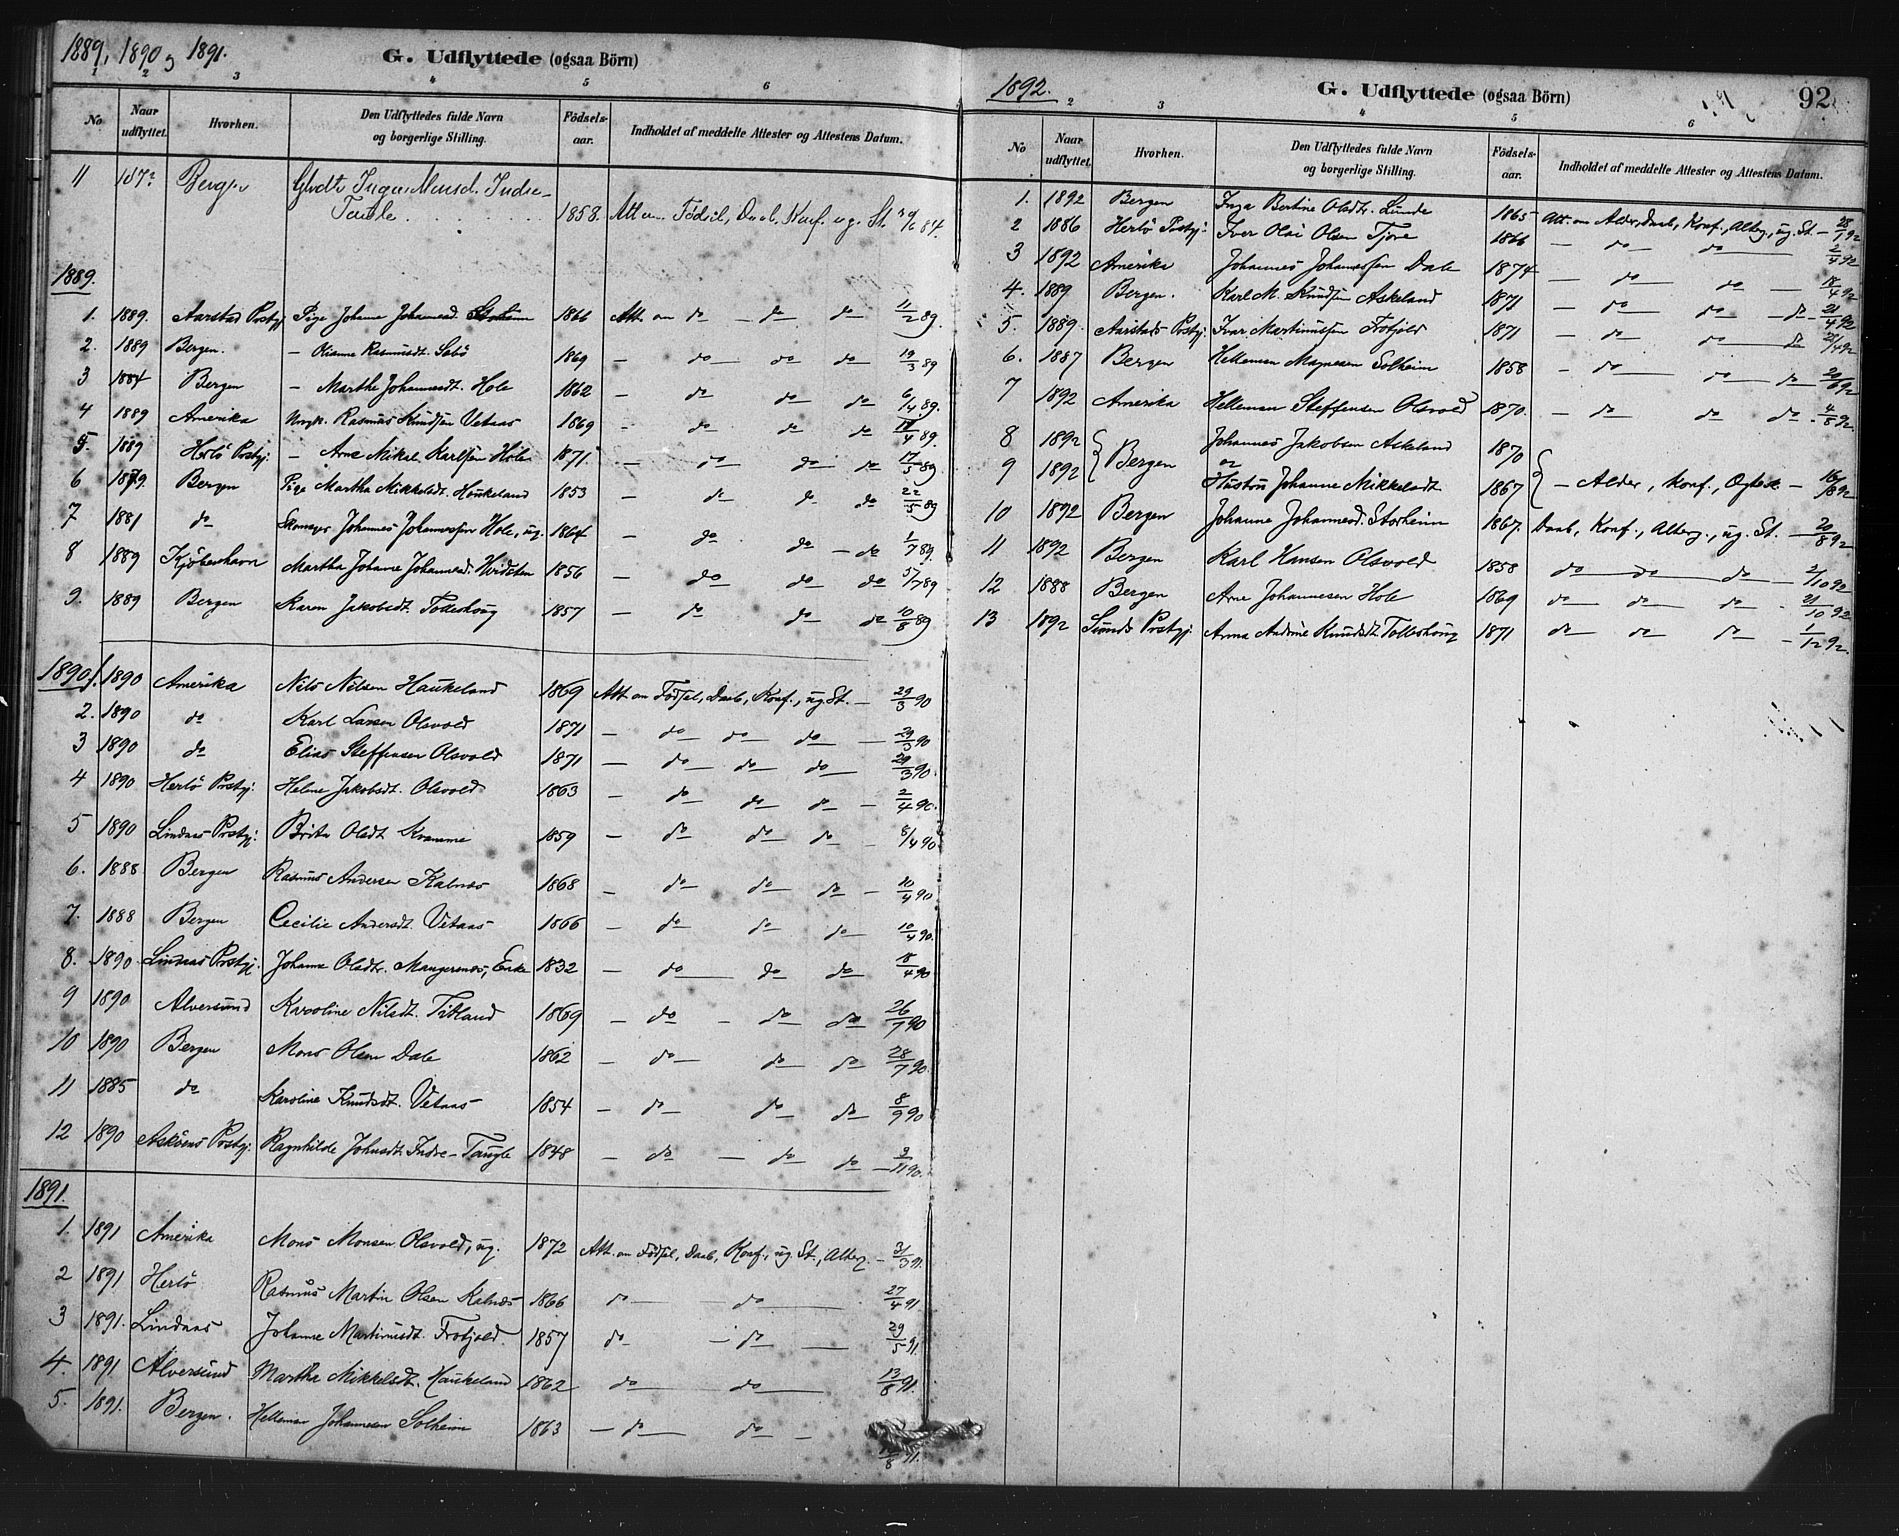 1889, 1890 og 1891.
G. Udflyttede (ogsaa Börn)
1 2 3 4 5 6
No Naar udflyttet. Hvorhen. Den Udflyttedes fulde Navn og borgerlige Stilling. Födsels-aar. Indholdet af meddelte Attester og Attestens Datum.
11 187? Bergen Inger Monsd. Indre-
Taule 1858. Att. om Födsel, Daab, Konf. og 84.
1889.
1. 1889. Aarstad Prstgj. Pige Johanne Johannesd. Storheim 1866 Att. om do - do do 11/2 89.
2. 1889 Bergen. - Oianne Rasmusdt. Sæbö 1869 - do do do 19/3 89
3 1884 Bergen - Marthe Johannesdt. Hole 1862 - do do do 6/4 89.
4 1889 Amerika Ungk. Rasmus Knudsen Vetaas 1869 - do do do 18/4 89.
5. 1889 Herlö Prstgj: - Arne Mikal Karlsen Hole 1871 - do do do 17/5 89
6 1879. Bergen Pige Martha Mikkelsdt. Haukeland 1853 - do do do 22/5 89
7 1881 do Skomager Johannes Johannessen Hole, ug. 1864 - do do - do 1/7 89.
8 1889 Kjöbenhavn Martha Johanne Johannesd. Hvidsten 1856 - do do do 5/7 89
9. 1889 Bergen Karen Jakobsdt. Tolleshoug 1857 - do do do 10/8 89
1890 1. 1890 Amerika Nils Nilsen Haukeland 1869 Att. om Födsel, Daab, Konf., ug. St. - 29/3 90
2. 1890 do Karl Larsen Olsvold 1871 - do do do - 29/3 90
3 1890 do Elias Steffensen Olsvold 1871 - do do do 29/3 90.
4 1890 Herlö Prstgj: Helene Jakobsdt. Olsvold 1863 - do do do - 2/4 90.
5 1890 Lindaas Prstgj: Brita Olsdt. Kvamme 1859 - do do do - 8/4 90
6. 1888 Bergen Rasmus Andersen Kalnæs 1868 - do do do - 10/4 90
7. 1888 Bergen Cecilie Andersdt. Vetaas 1866 - do do do 10/4 90.
8. 1890 Lindaas Prstgj. Johanne Olsdtr. Mangernæs, Enke 1832 - do do do 18/4 90
9 1890 Alversund Karoline Nilsdt. Titland 1869 - do - do do 26/7 90
10 1890 Bergen Mons Olsen Dale 1862 - do do do 28/7 90
11 1885 do Karoline Knudsdt. Vetaas 1854 - do do do 8/9 90
12 1890 Asköens Prstgj. Ragnhilde Johnsdt. Indre-Taugle 1848 - do - do do 3/11 90.
1891.
1. 1891 Amerika Mons Monsen Olsvold, ug. 1872 Att. om Födsel, Daab, Konf., ug. St., Alterg. - 31/3 91.
2 1891 Herlö Rasmus Martin Olsen Kalnæs 1866 do do 27/4 91
3 1891. Lindaas Johanne Martinusdt. Frotjold. 1857 do - do 29/5 91.
4. 1891. Alversund Martha Mikkelsdt. Haukeland 1862 do do 13/8 91.
5. 1891. Bergen. Helleman Johannesen Solheim 1863 - do do - 8 91.
1892.
G. Udflyttede (ogsaa Börn)
92
2 3 4 5 6
No Naar udflyttet. Hvorhen. Den Udflyttedes fulde Navn og borgerlige Stilling. Födsels-aar. Indholdet af meddelte Attester og Attestens Datum.
1. 1892 Bergen Inga Bertine Olsdtr. Lunde 1865 Att. om Alder, Daab, Konf., Alterg., ug. St. - 28/1 92
2 1886 Herlö Prstgj: Iver Olai Olsen Tjore 1866 - do do 2/4 92
3 1892 Amerika Johannes Johannessen Dale 1874 - do do 18/4 92
4. 1889 Bergen. Karl M. Knudsen Askeland 1871 - do do - do - 21/4 92
5. 1889. Aarstads Prstgj: Ivar Martinussen Frotjold 1871 - do do do 21/4 92
6. 1887 Bergen Helleman Magnesen Solheim 1858 - do do do 20/6 92
7 1892 Amerika Helleman Steffensen Olsvold 1870. - do do do - 4/8 92.
8 1892 Bergen Johannes Jakobsen Askeland 1870
og
9 1892 Hustru Johanne Mikkelsdt 1867 - Alder, Konf., - 16/8 92
10 1892 Bergen Johanne Johannesd. Storheim 1867. Daab, Konf., Alterg., ug. St. - 20/8 92
11 1892 Bergen Karl Hansen Olsvold 1858 do do do - 2/10 92
12 1888 Bergen Arne Johannesen Hole 1869 do do do - 21/10 92
13 1892 Sunds Prstgj. Anna Andrine Knudsdt Tolleshoug 1871 do do do - 1/12 92.